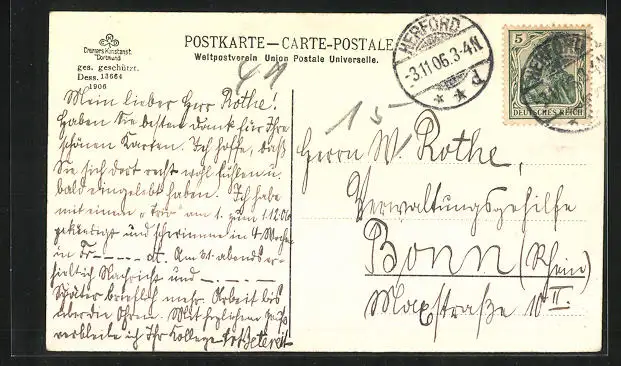 Cramers Kunstanst.
Dortmund
ges. geschützt.
Dess. 13664
1906
POSTKARTE — CARTE-POSTALE
Weltpostverein Union Postale Universelle.
HERFORD
-3.11.06.3-4N.
* * d
5
DEUTSCHES REICH
41
15
Mein lieber Herr Rothe!
Haben Sie besten Dank für Ihre
schönen Karten. Ich hoffe, daß
Sie sich dort recht wohl fühlen u.
bald eingelebt haben. Ich habe
mit einem „Trio" am 1. zum 1.12.06
gekündigt und schwimme in 4 Wochen
in Fr – – – – – a. Am 31. abends er-
hielt ich Nachricht und – . – . –
Später brieflich mehr. Arbeit bis
über die Ohren. Mit herzlichem Gruß
verbleibe ich Ihr Kollege
Herrn W. Rothe,
Verwaltungsgehilfe
Bonn (Rhein)
Maxstraße 10 II.